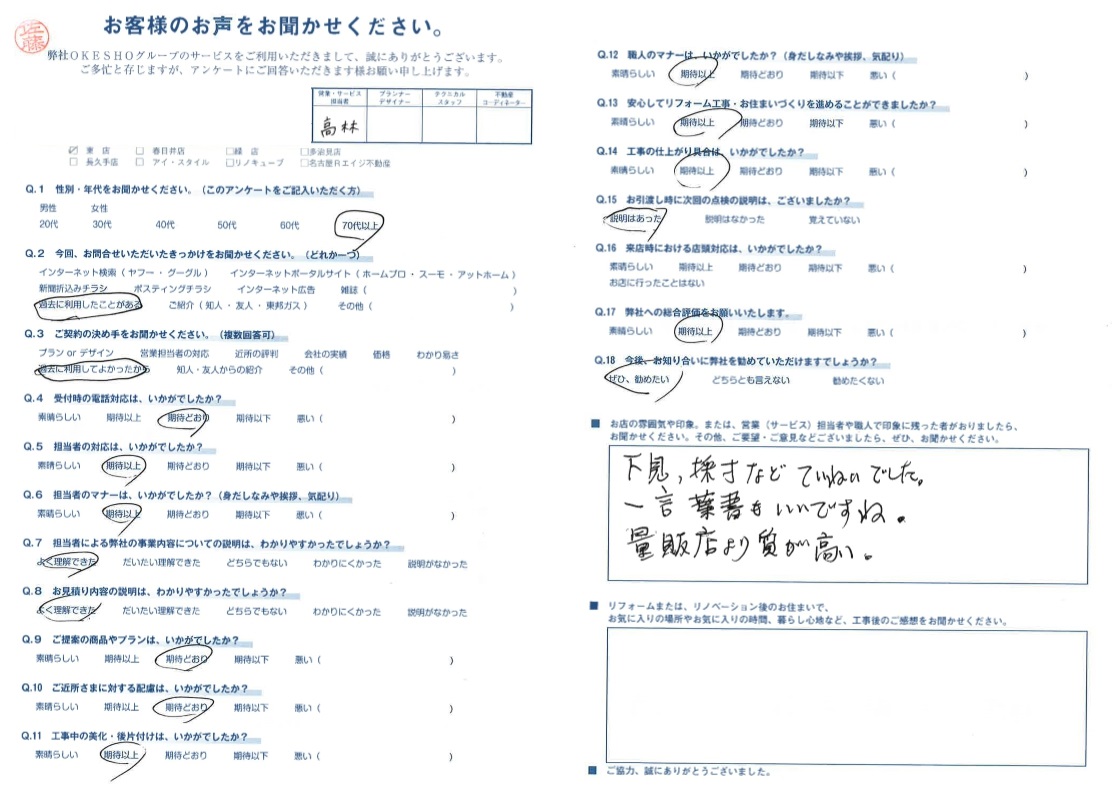 佐藤
お客様のお声をお聞かせください。
弊社OKESHOグループのサービスをご利用いただきまして、誠にありがとうございます。
ご多忙と存じますが、アンケートにご回答いただきます様お願い申し上げます。
営業・サービス担当者 プランナーデザイナー テクニカルスタッフ 不動産コーディネーター
高林
☑ 東 店 □ 春日井店 □緑 店 □多治見店
□ 長久手店 □ アイ・スタイル □リノキューブ □名古屋Rエイジ不動産
Q.1 性別・年代をお聞かせください。（このアンケートをご記入いただく方）
男性 女性
20代 30代 40代 50代 60代 70代以上
Q.2 今回、お問合せいただいたきっかけをお聞かせください。（どれか一つ）
インターネット検索（ ヤフー ・ グーグル ） インターネットポータルサイト（ ホームプロ ・ スーモ ・ アットホーム ）
新聞折込みチラシ ポスティングチラシ インターネット広告 雑誌（ ）
過去に利用したことがある ご紹介（ 知人 ・ 友人 ・ 東邦ガス ） その他（ ）
Q.3 ご契約の決め手をお聞かせください。（複数回答可）
プラン or デザイン 営業担当者の対応 近所の評判 会社の実績 価格 わかり易さ
過去に利用してよかったから 知人・友人からの紹介 その他（ ）
Q.4 受付時の電話対応は、いかがでしたか？
素晴らしい 期待以上 期待どおり 期待以下 悪い（ ）
Q.5 担当者の対応は、いかがでしたか？
素晴らしい 期待以上 期待どおり 期待以下 悪い（ ）
Q.6 担当者のマナーは、いかがでしたか？（身だしなみや挨拶、気配り）
素晴らしい 期待以上 期待どおり 期待以下 悪い（ ）
Q.7 担当者による弊社の事業内容についての説明は、わかりやすかったでしょうか？
よく理解できた だいたい理解できた どちらでもない わかりにくかった 説明がなかった
Q.8 お見積り内容の説明は、わかりやすかったでしょうか？
よく理解できた だいたい理解できた どちらでもない わかりにくかった 説明がなかった
Q.9 ご提案の商品やプランは、いかがでしたか？
素晴らしい 期待以上 期待どおり 期待以下 悪い（ ）
Q.10 ご近所さまに対する配慮は、いかがでしたか？
素晴らしい 期待以上 期待どおり 期待以下 悪い（ ）
Q.11 工事中の美化・後片付けは、いかがでしたか？
素晴らしい 期待以上 期待どおり 期待以下 悪い（ ）
Q.12 職人のマナーは、いかがでしたか？（身だしなみや挨拶、気配り）
素晴らしい 期待以上 期待どおり 期待以下 悪い（ ）
Q.13 安心してリフォーム工事・お住まいづくりを進めることができましたか？
素晴らしい 期待以上 期待どおり 期待以下 悪い（ ）
Q.14 工事の仕上がり具合は、いかがでしたか？
素晴らしい 期待以上 期待どおり 期待以下 悪い（ ）
Q.15 お引渡し時に次回の点検の説明は、ございましたか？
説明はあった 説明はなかった 覚えていない
Q.16 来店時における店頭対応は、いかがでしたか？
素晴らしい 期待以上 期待どおり 期待以下 悪い（ ）
お店に行ったことはない
Q.17 弊社への総合評価をお願いいたします。
素晴らしい 期待以上 期待どおり 期待以下 悪い（ ）
Q.18 今後、お知り合いに弊社を勧めていただけますでしょうか？
ぜひ、勧めたい どちらとも言えない 勧めたくない
■ お店の雰囲気や印象。または、営業（サービス）担当者や職人で印象に残った者がおりましたら、
お聞かせください。その他、ご要望・ご意見などございましたら、ぜひ、お聞かせください。
下見，採寸など ていねいでした。
一言 葉書もいいですね。
量販店より質が高い。
■ リフォームまたは、リノベーション後のお住まいで、
お気に入りの場所やお気に入りの時間、暮らし心地など、工事後のご感想をお聞かせください。
■ ご協力、誠にありがとうございました。